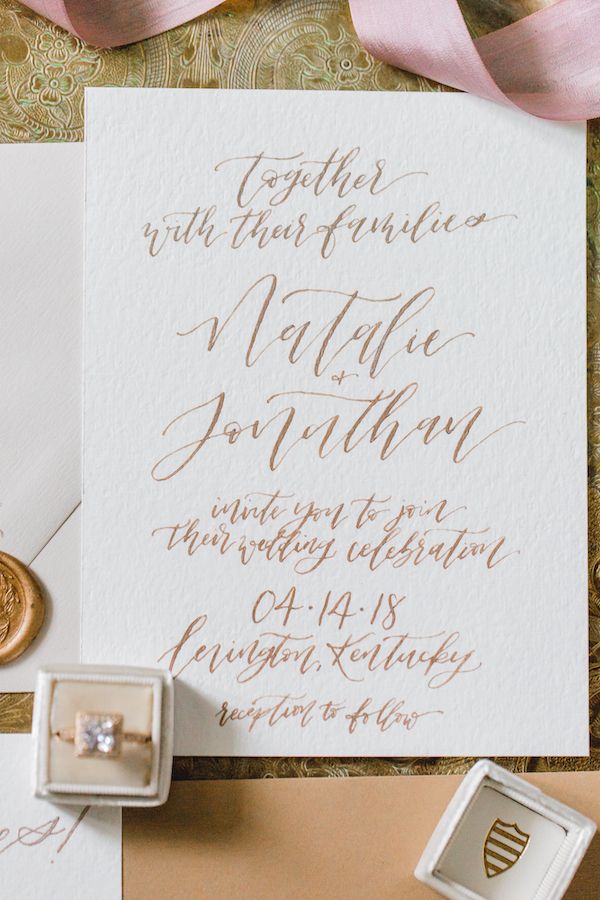 together
with their families
Natalie
+
Jonathan
invite you to join
their wedding celebration
04·14·18
Lexington, Kentucky
reception to follow